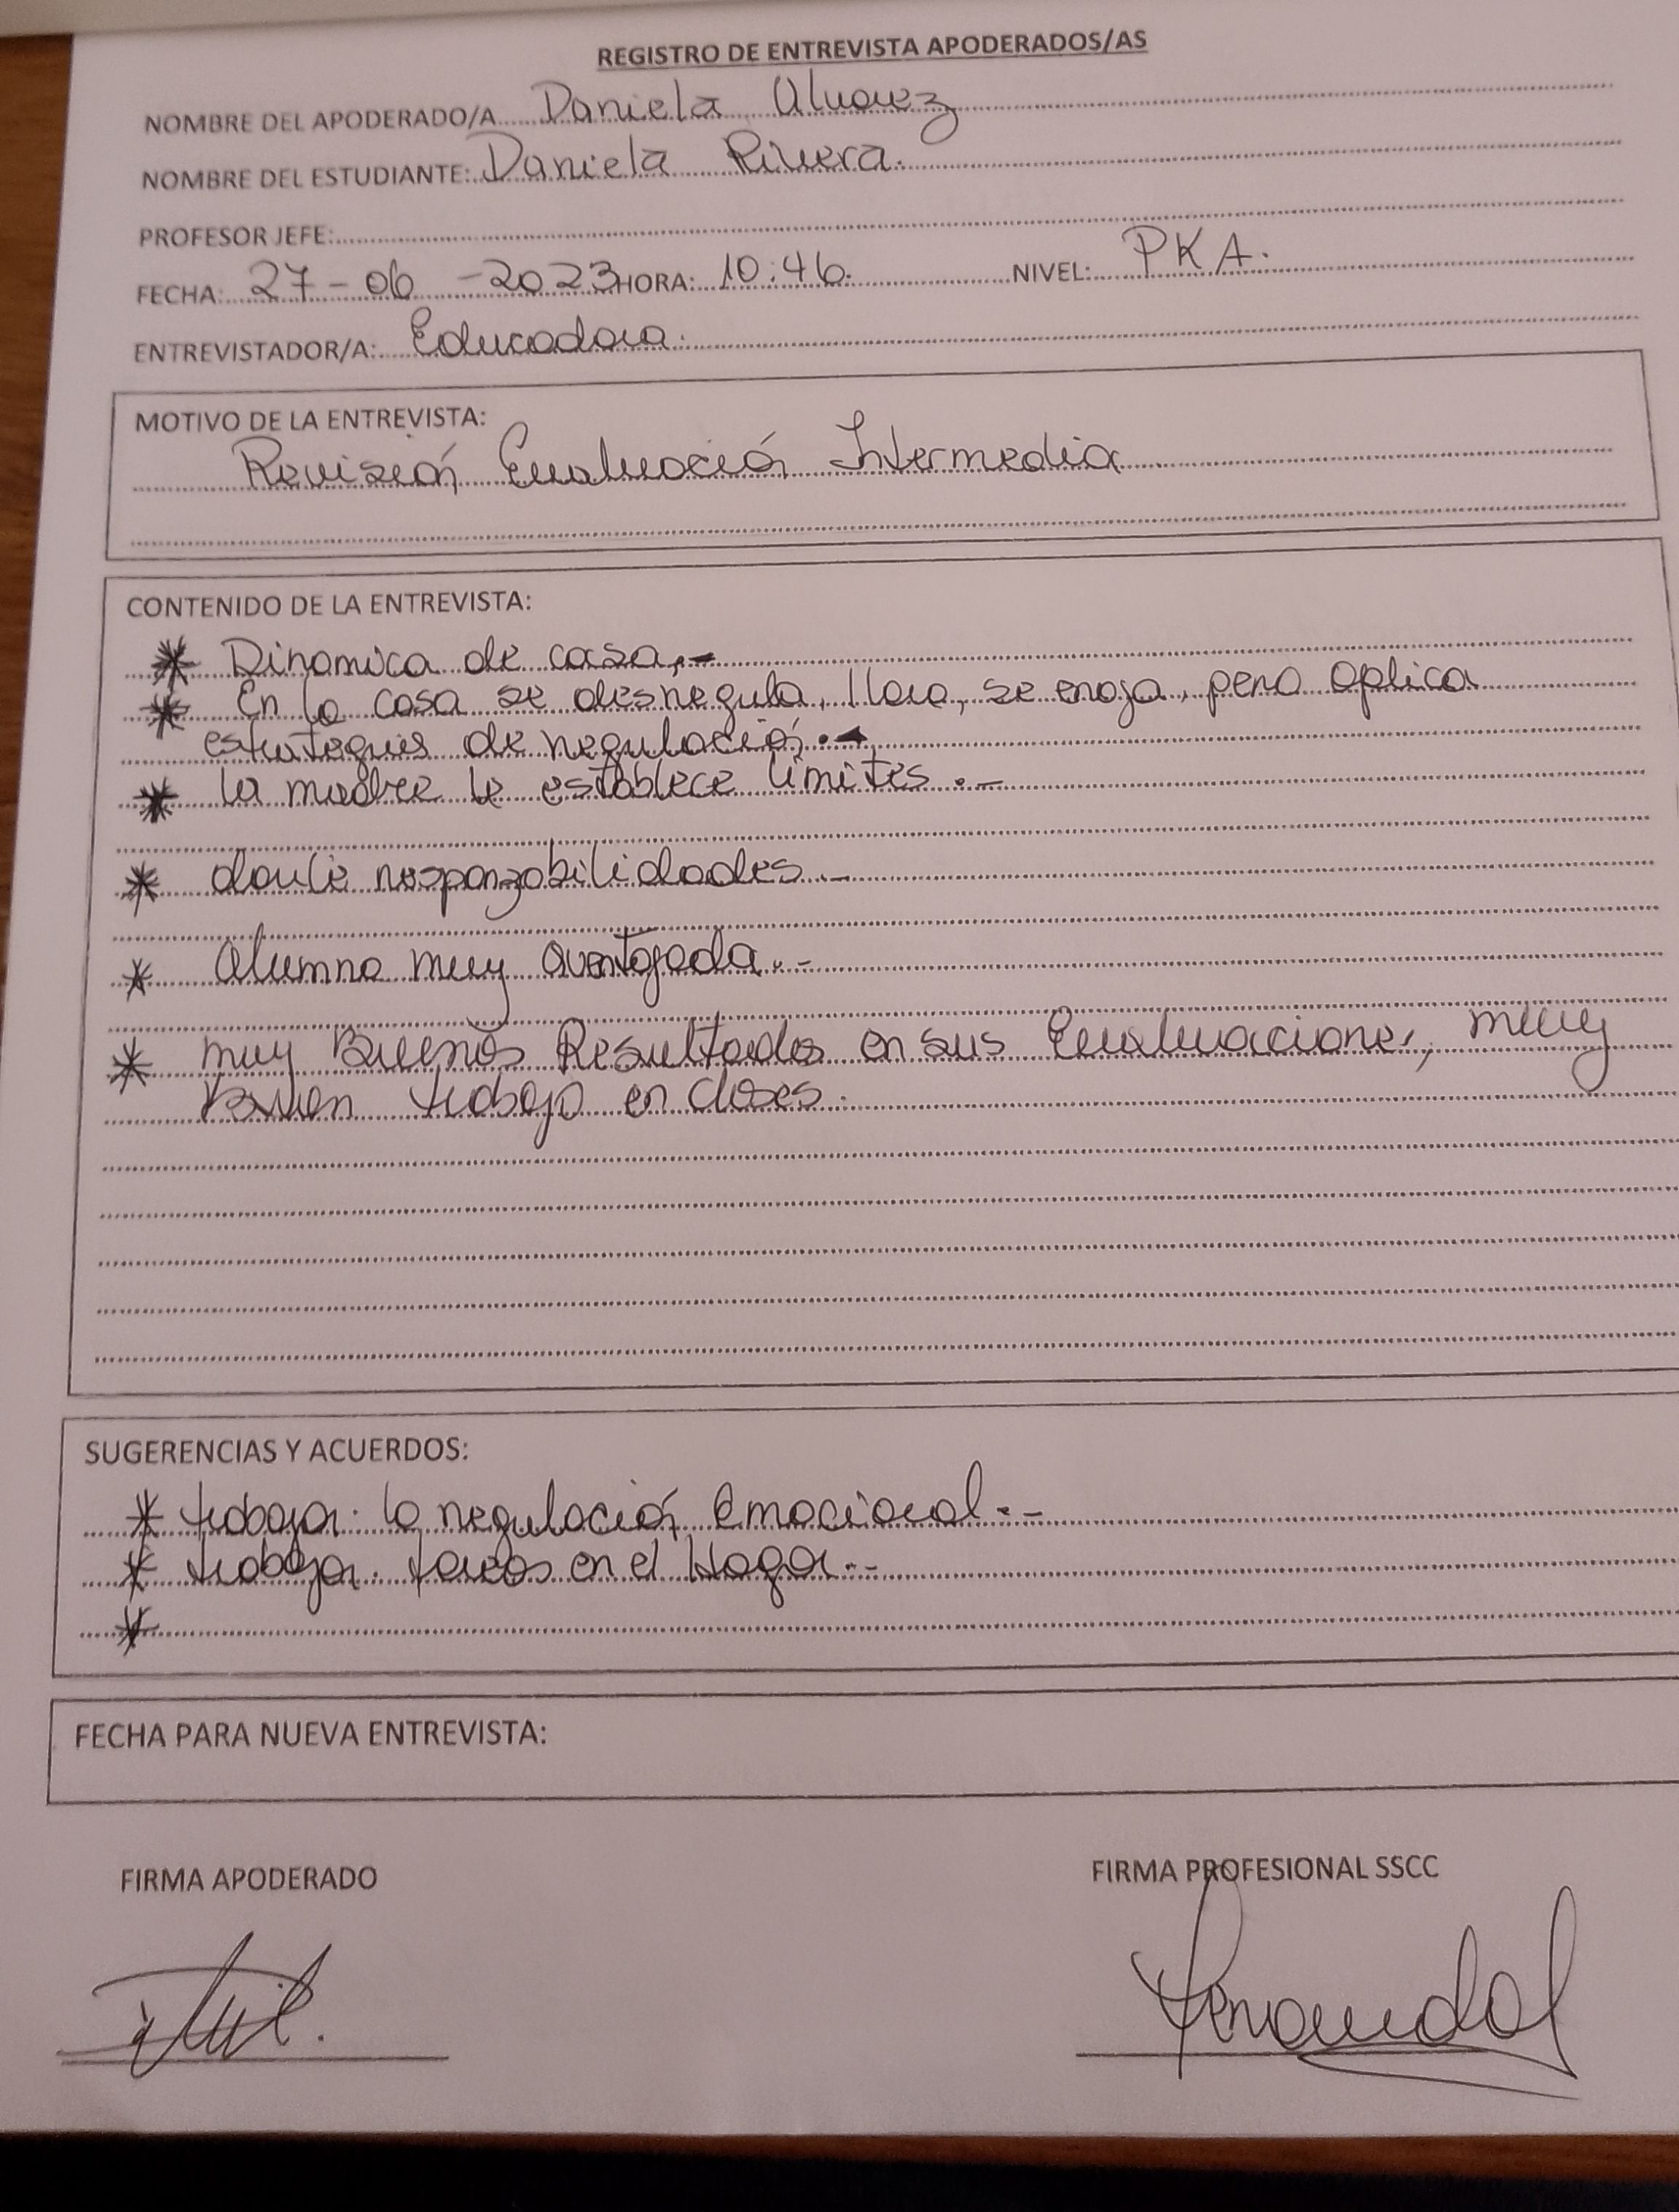 REGISTRO DE ENTREVISTA APODERADOS/AS
NOMBRE DEL APODERADO/A Daniela Alvarez
NOMBRE DEL ESTUDIANTE: Daniela Rivera.
PROFESOR JEFE:
FECHA: 27-06-2023 HORA: 10:46. NIVEL: PKA.
ENTREVISTADOR/A: Educadora.
MOTIVO DE LA ENTREVISTA:
Revisión Evaluación Intermedia
CONTENIDO DE LA ENTREVISTA:
* Dinamica de casa.-
* En la casa se desregula, llora, se enoja, pero aplica
estrategias de regulación.-
* la madre le establece límites.-
* responzabilidades.-
* Alumna muy aventajada.-
* muy Buenos Resultados en sus Evaluaciones, muy
Buen trabajo en clases.
SUGERENCIAS Y ACUERDOS:
* trabajar la regulación Emocional.-
* trabajar tareas en el Hogar.-
*
FECHA PARA NUEVA ENTREVISTA:
FIRMA APODERADO FIRMA PROFESIONAL SSCC